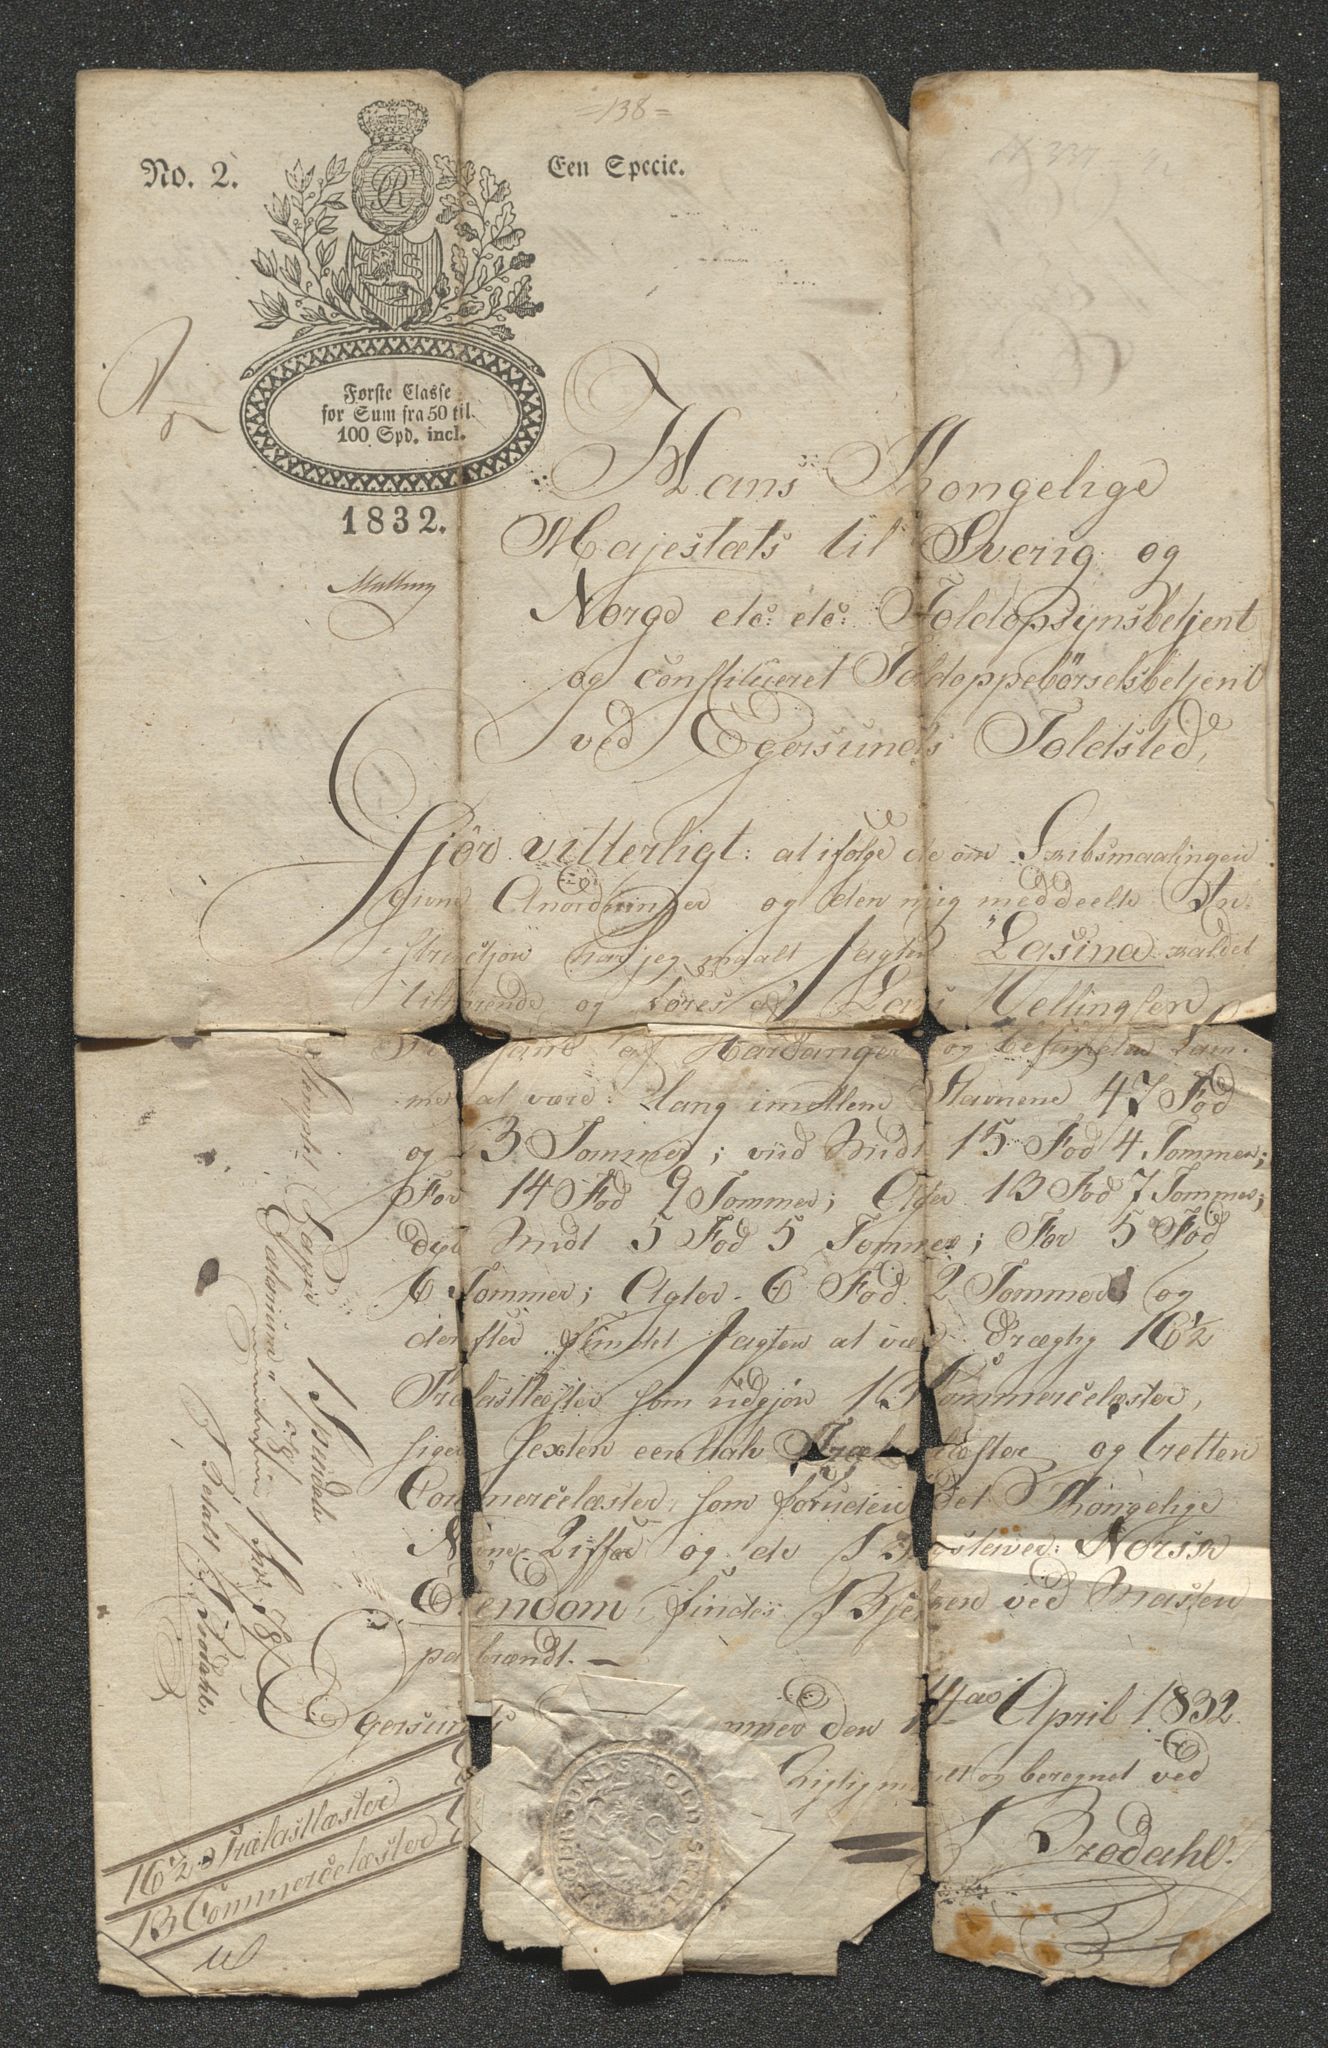 =138=
No. 2.
Een Specie.
R
Første Classe
for Sum fra 50 til
100 Spd. incl.
1832.
Hans Kongelige
Majestæts til Sverig og
Norge etc: etc: Toldopsynsbetjent
og constitueret Toldoppebörselsbetjent
ved Egersunds Toldsted,
Gjör vitterligt: at ifölge de om Skibsmaalingen
givne Anordninger og den mig meddeelte In-
struction har jeg maalt Jagten "Lasina" kaldet
tilhörende og föres af Lars Mellingsen
af Hardanger og befunden sam-
me at være: lang imellem Stavnene 47 Fod
og 3 Tommer; viid Midt 15 Fod 4 Tommer;
For 14 Fod 9 Tommer; Agter 13 Fod 7 Tommer;
dyb Midt 5 Fod 5 Tommer; For 5 Fod
6 Tommer; Agter 6 Fod 2 Tommer; og
derefter findet Jagten at være drægtig 16½
Trælastlæster som udgjör 13 Commercelæster,
siger sexten een halv Trælastlæster og tretten
Commercelæster, som foruden det Kongelige
Navne Ziffer og de Bogstaver: Norsk
Eiendom, findes i Bjelken ved Masten
paabrændt. —
Egersunds den 14de April 1832.
Rigtig maalt og beregnet ved
Brodahl.
EGERSUNDS TOLDSTED
Stemplet Papir 1 Specidaler
Betalt Brodahl.
16½ Trælastlæster
13 Commercelæster